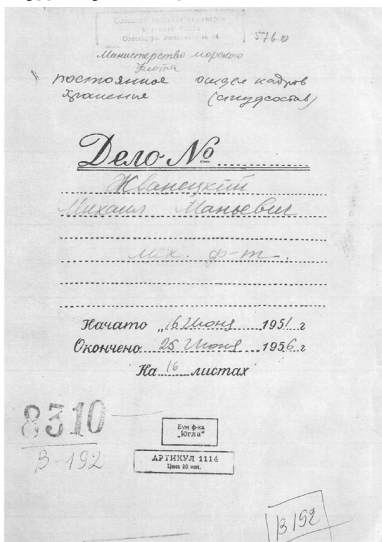 5760
Министерство морского
флота
постоянное отдел кадров
хранение (студсостав)
Дело №
Жванецкий
Михаил Маньевич
мех. ф-т.
Начато „16 Июня 1951 г
Окончено 25 Июня 1956 г
На 16 листах
8310
В-192
Бум ф-ка
„Югла“
АРТИКУЛ 1114
Цена 20 коп.
В 192